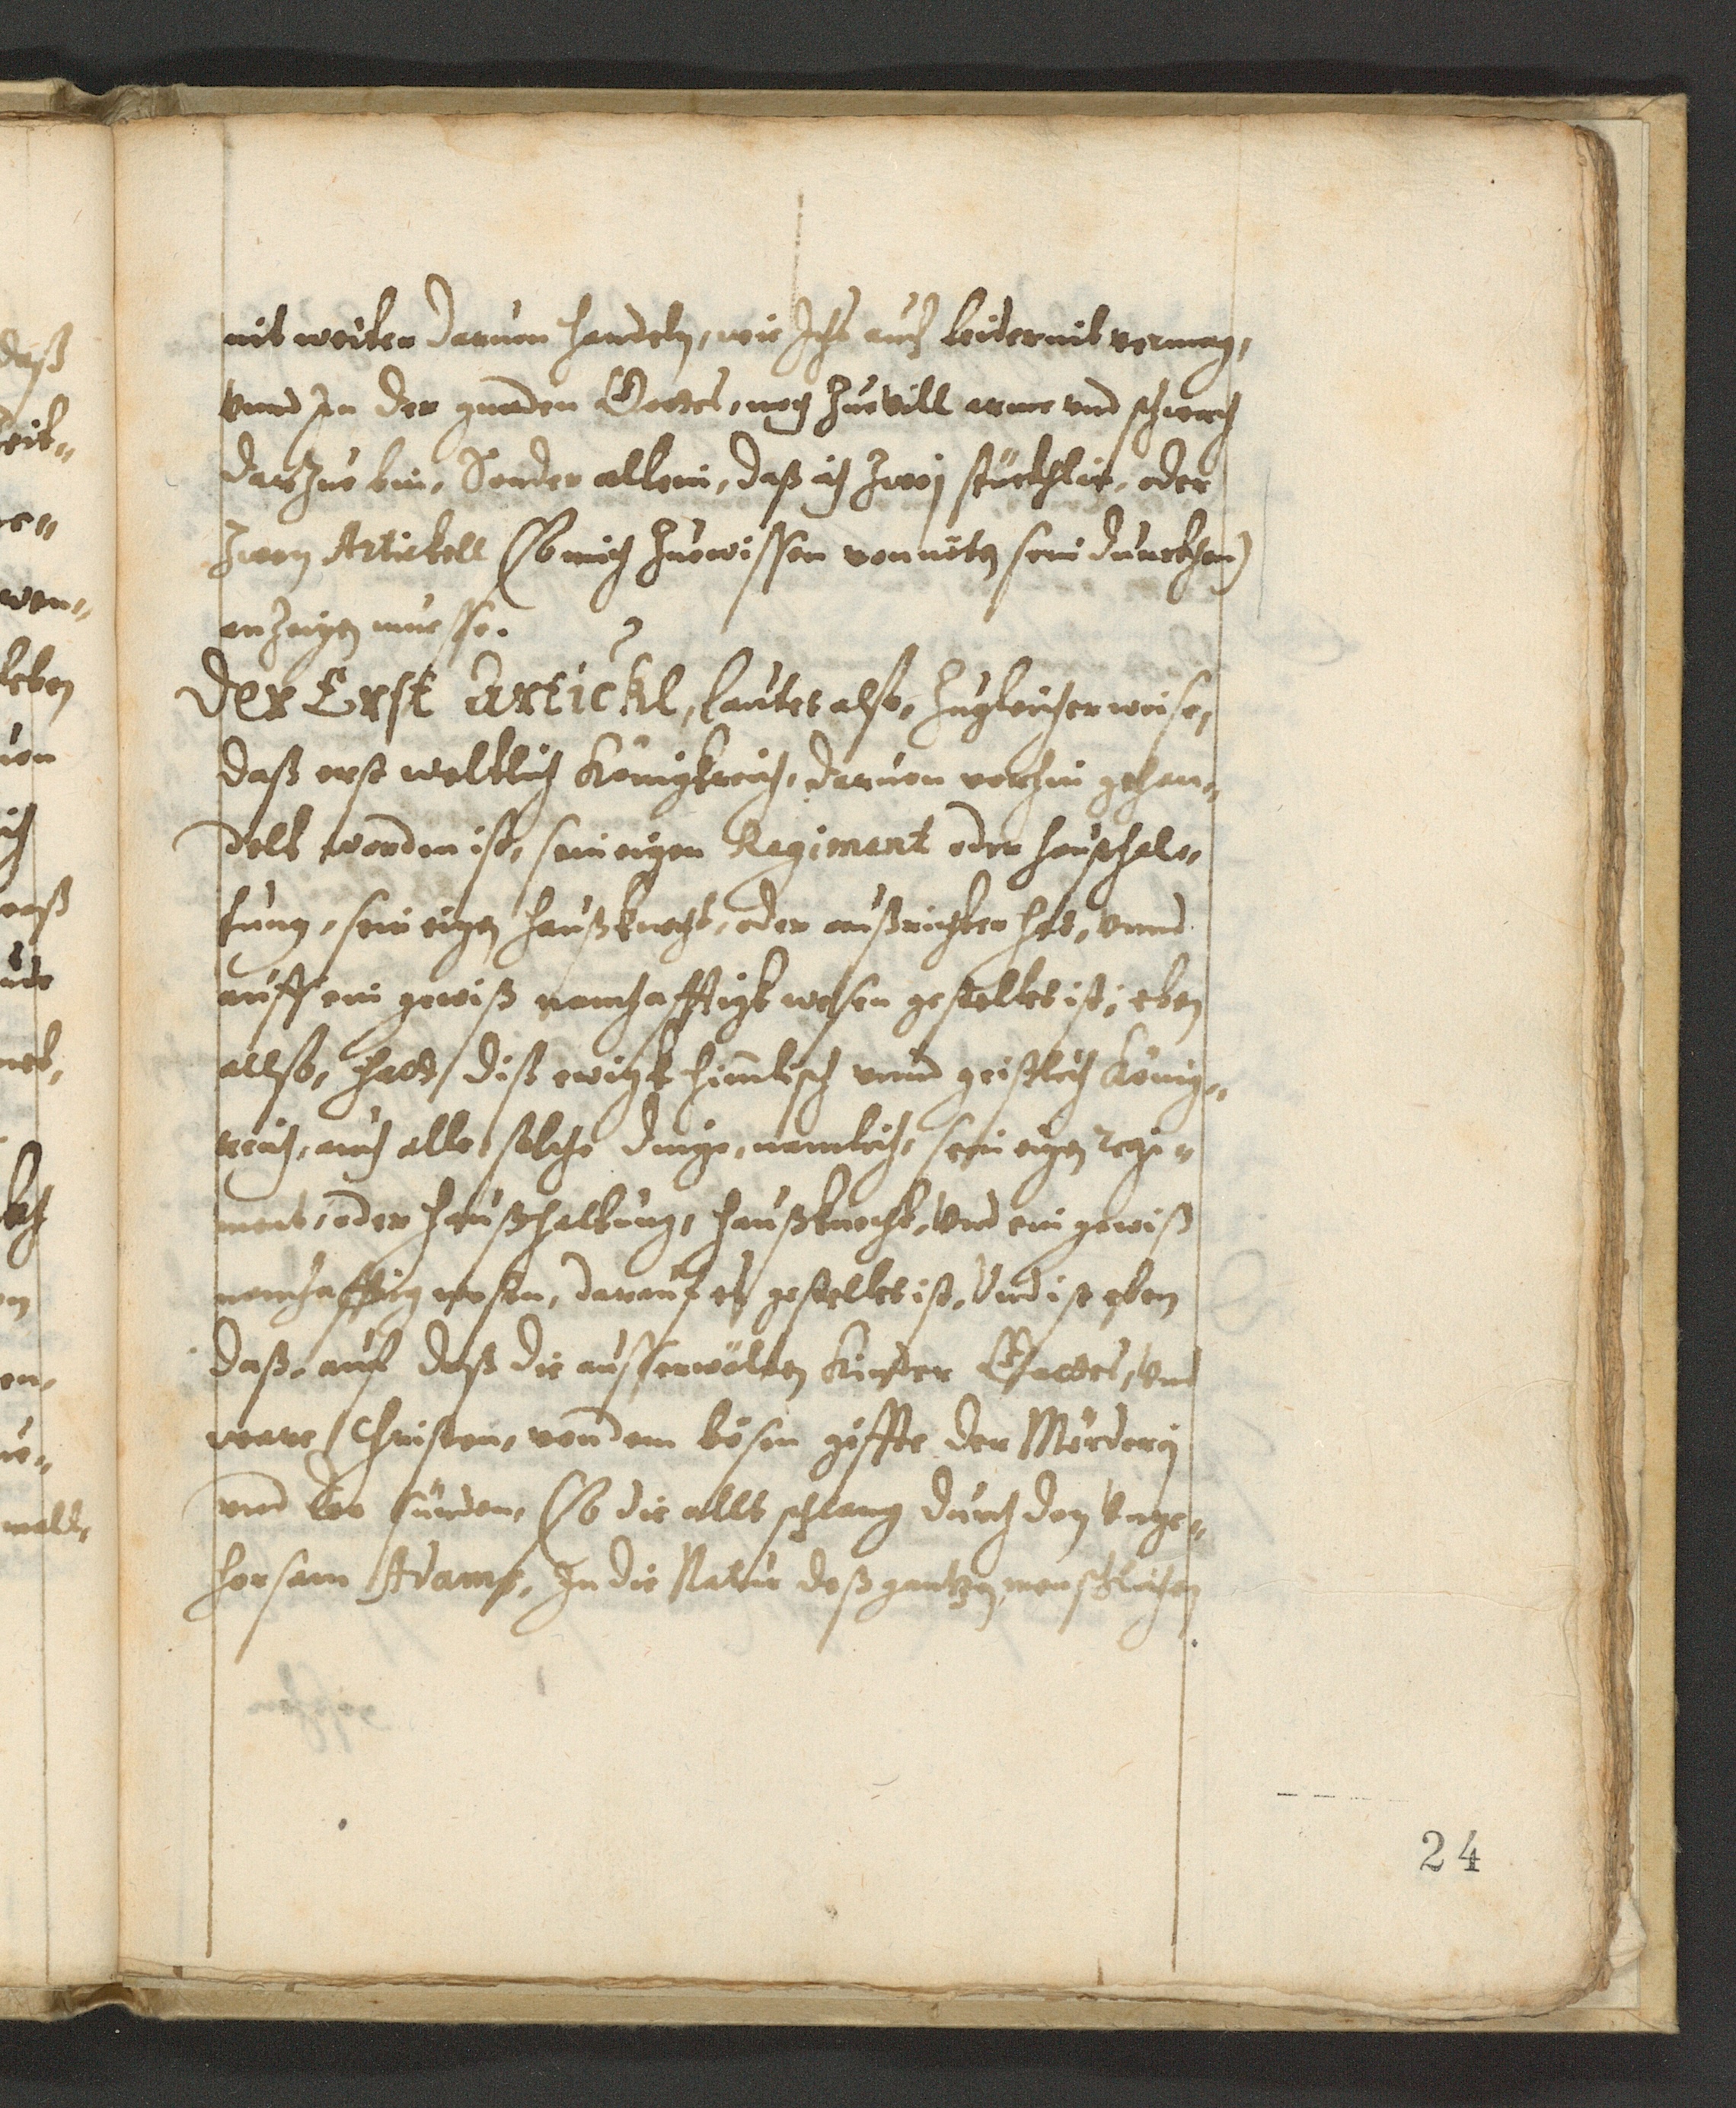 nit weiter daruon handeln, wie Ichs auch leider nit vermag,
vnnd In der gnaden Gottes, noch zue vill arme vnd schwach
darzue bin, Sonder allein, daß ich zwej stückhlin, oder
zwen Artickell (So mich zuewissen von nöten sein dunckhen)
anzeigen muesse.
Der Erst Artickl, lautet also, zugleicher weise,
daß erst weltlich Königkreich, daruon vorhin gehan„
delt worden ist, sein eigen Regiment oder haußhal„
tung, sein eigen haußknecht, oder außrichter hat, vnnd
auff ein gewiß namhafftigk wesen gestellet ist, eben
allso, hatt diß ewigk himlisch vnnd geistlich König„
reich, auch alle solche dinge, namlich, sein eigen regi„
ment, oder haußhaltung, haußknecht, vnd ein gewiß
namhafftig wesen, darauf es gestellet ist, Vnd ist eben
daß, auf daß die ausserwölten Kinder Gottes, vnd
ware Christen, von dem bösen giffte der Mörderey
vnd der sünden, So die allt schlang durch den vnge„
horsam Adams, In die Natur deß gantzen menschlichen
24
daß
wen„
leben
uon
ich